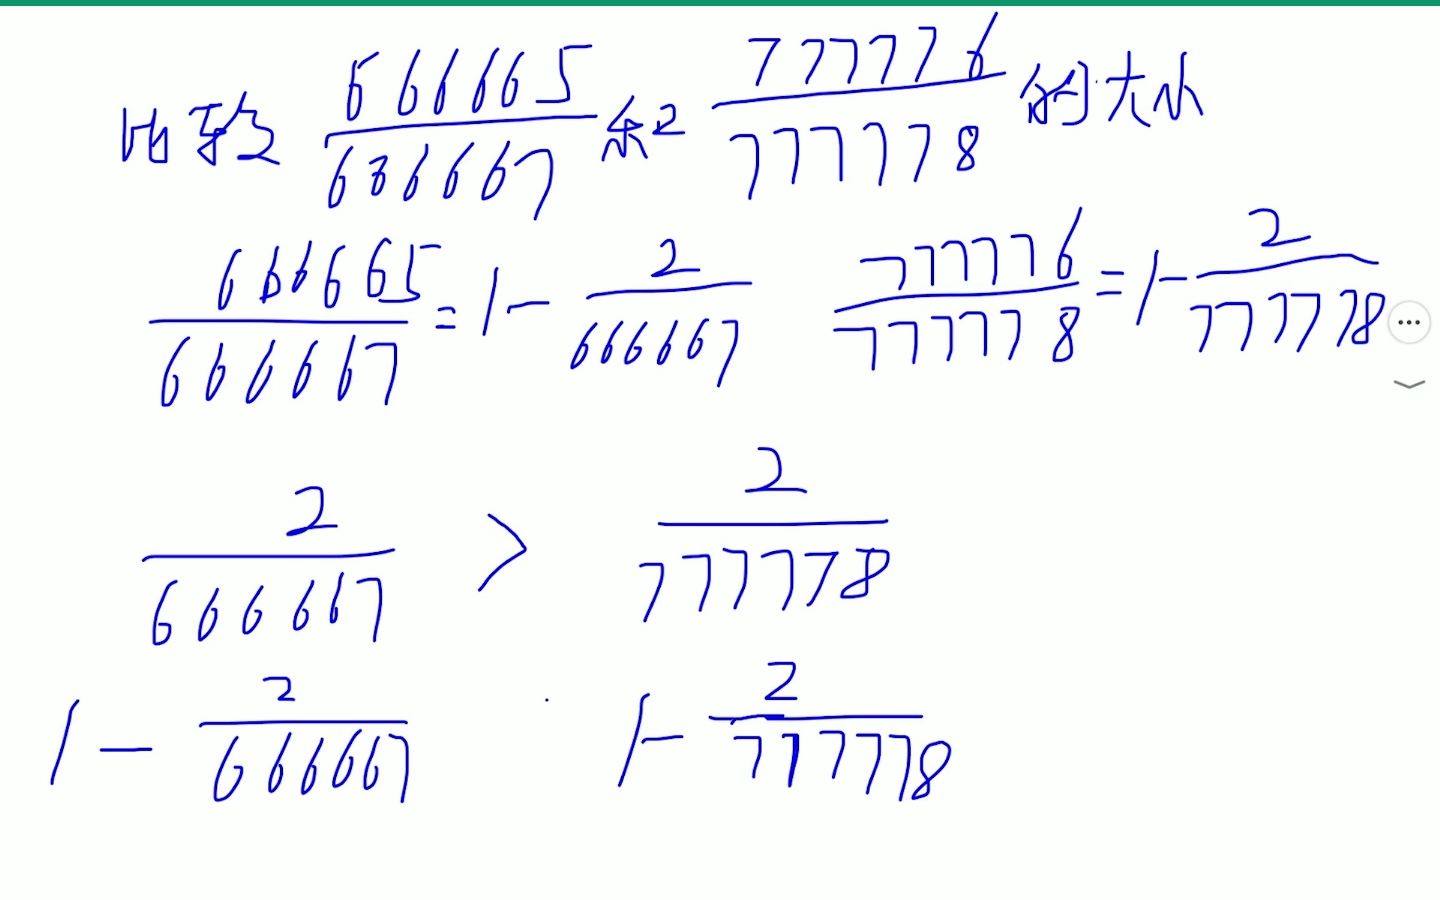 比较 666665/666667 和 777776/777778 的大小
666665/666667 = 1 - 2/666667 777776/777778 = 1 - 2/777778
2/666667 > 2/777778
1 - 2/666667 1 - 2/777778